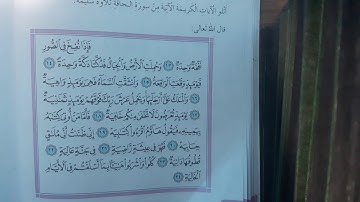 أتلو الآيات الكريمة الآتية من سورة الحاقة تلاوة سليمة.
قال الله تعالى:
فَإِذَا نُفِخَ فِي ٱلصُّورِ
نَفْخَةٌ وَٰحِدَةٌ ١٣ وَحُمِلَتِ ٱلْأَرْضُ وَٱلْجِبَالُ فَدُكَّتَا دَكَّةً وَٰحِدَةً ١٤
فَيَوْمَئِذٍ وَقَعَتِ ٱلْوَاقِعَةُ ١٥ وَٱنشَقَّتِ ٱلسَّمَآءُ فَهِيَ يَوْمَئِذٍ وَاهِيَةٌ
١٦ وَٱلْمَلَكُ عَلَىٰٓ أَرْجَآئِهَا وَيَحْمِلُ عَرْشَ رَبِّكَ فَوْقَهُمْ يَوْمَئِذٍ ثَمَٰنِيَةٌ
١٧ يَوْمَئِذٍ تُعْرَضُونَ لَا تَخْفَىٰ مِنكُمْ خَافِيَةٌ ١٨ فَأَمَّا مَنْ أُوتِيَ كِتَٰبَهُۥ
بِيَمِينِهِۦ فَيَقُولُ هَآؤُمُ ٱقْرَءُوا۟ كِتَٰبِيَهْ ١٩ إِنِّي ظَنَنتُ أَنِّي مُلَٰقٍ
حِسَابِيَهْ ٢٠ فَهُوَ فِي عِيشَةٍ رَّاضِيَةٍ ٢١ فِي جَنَّةٍ عَالِيَةٍ ٢٢
قُطُوفُهَا دَانِيَةٌ ٢٣ كُلُوا۟ وَٱشْرَبُوا۟ هَنِيٓـًٔۢا بِمَآ أَسْلَفْتُمْ فِي ٱلْأَيَّامِ
ٱلْخَالِيَةِ ٢٤